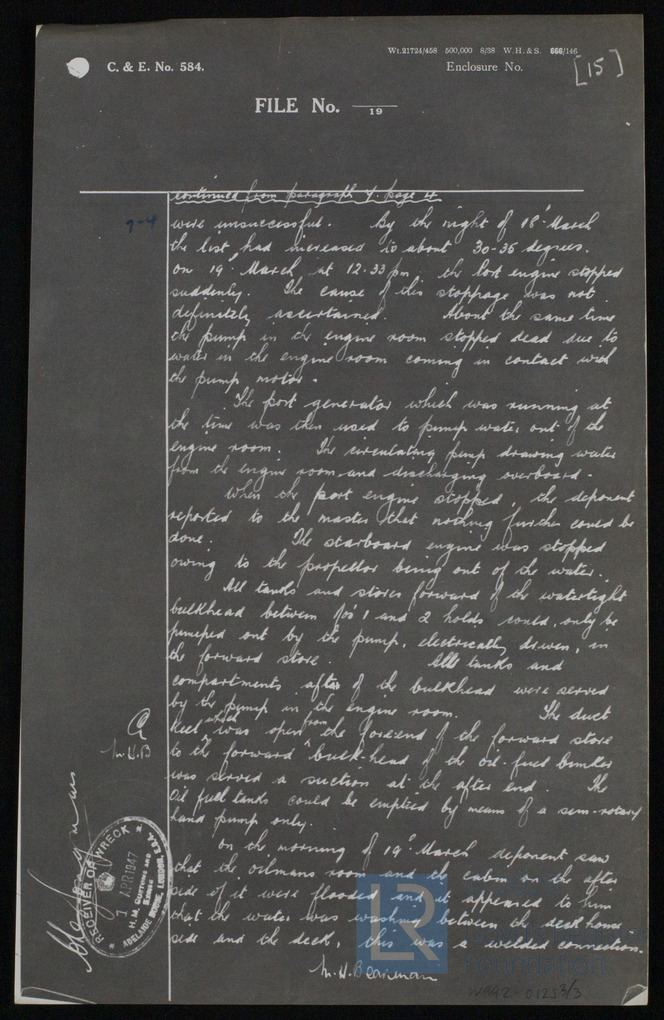 Wt.21724/458 500,000 8/38 W.H.&S. 666/146
C. & E. No. 584.
Enclosure No.
[15]
FILE No.
19
continued from paragraph 7. page 4
7-4
were unsuccessful. By the night of 18' March
the list had increased to about 30-35 degrees.
On 19' March, at 12.33 pm, the port engine stopped
suddenly. The cause of this stoppage was not
definitely ascertained. About the same time
the pump in the engine room stopped dead due to
water in the engine room coming in contact with
the pump motor.
The port generator which was running at
the time was then used to pump water out of the
engine room. The circulating pump drawing water
from the engine room and discharging overboard.
When the port engine stopped, the deponent
reported to the master that nothing further could be
done. The starboard engine was stopped
owing to the propellor being out of the water.
All tanks and stores forward of the watertight
bulkhead between Nos 1 and 2 holds could only be
pumped out by the pump, electrically driven, in
the forward store. All tanks and
compartments after of the bulkhead were served
by the pump in the engine room. The duct
keel which was open from the fore end of the forward store
to the forward bulk-head of the oil fuel bunker
was served a suction at the after end. The
Oil fuel tanks could be emptied by means of a semi-rotary
hand pump only.
M.H.B
On the morning of 19' March deponent saw
that the oilmans room and the cabin on the after
side of it were flooded and it appeared to him
that the water was washing between the deck house
side and the deck, this was a welded connection.
RECEIVER OF WRECK
1 APR 1947
H.M. CUSTOMS AND EXCISE
ADELAIDE HOUSE, LONDON, E.C.4
LR
Foundation
W992-0125 3/3